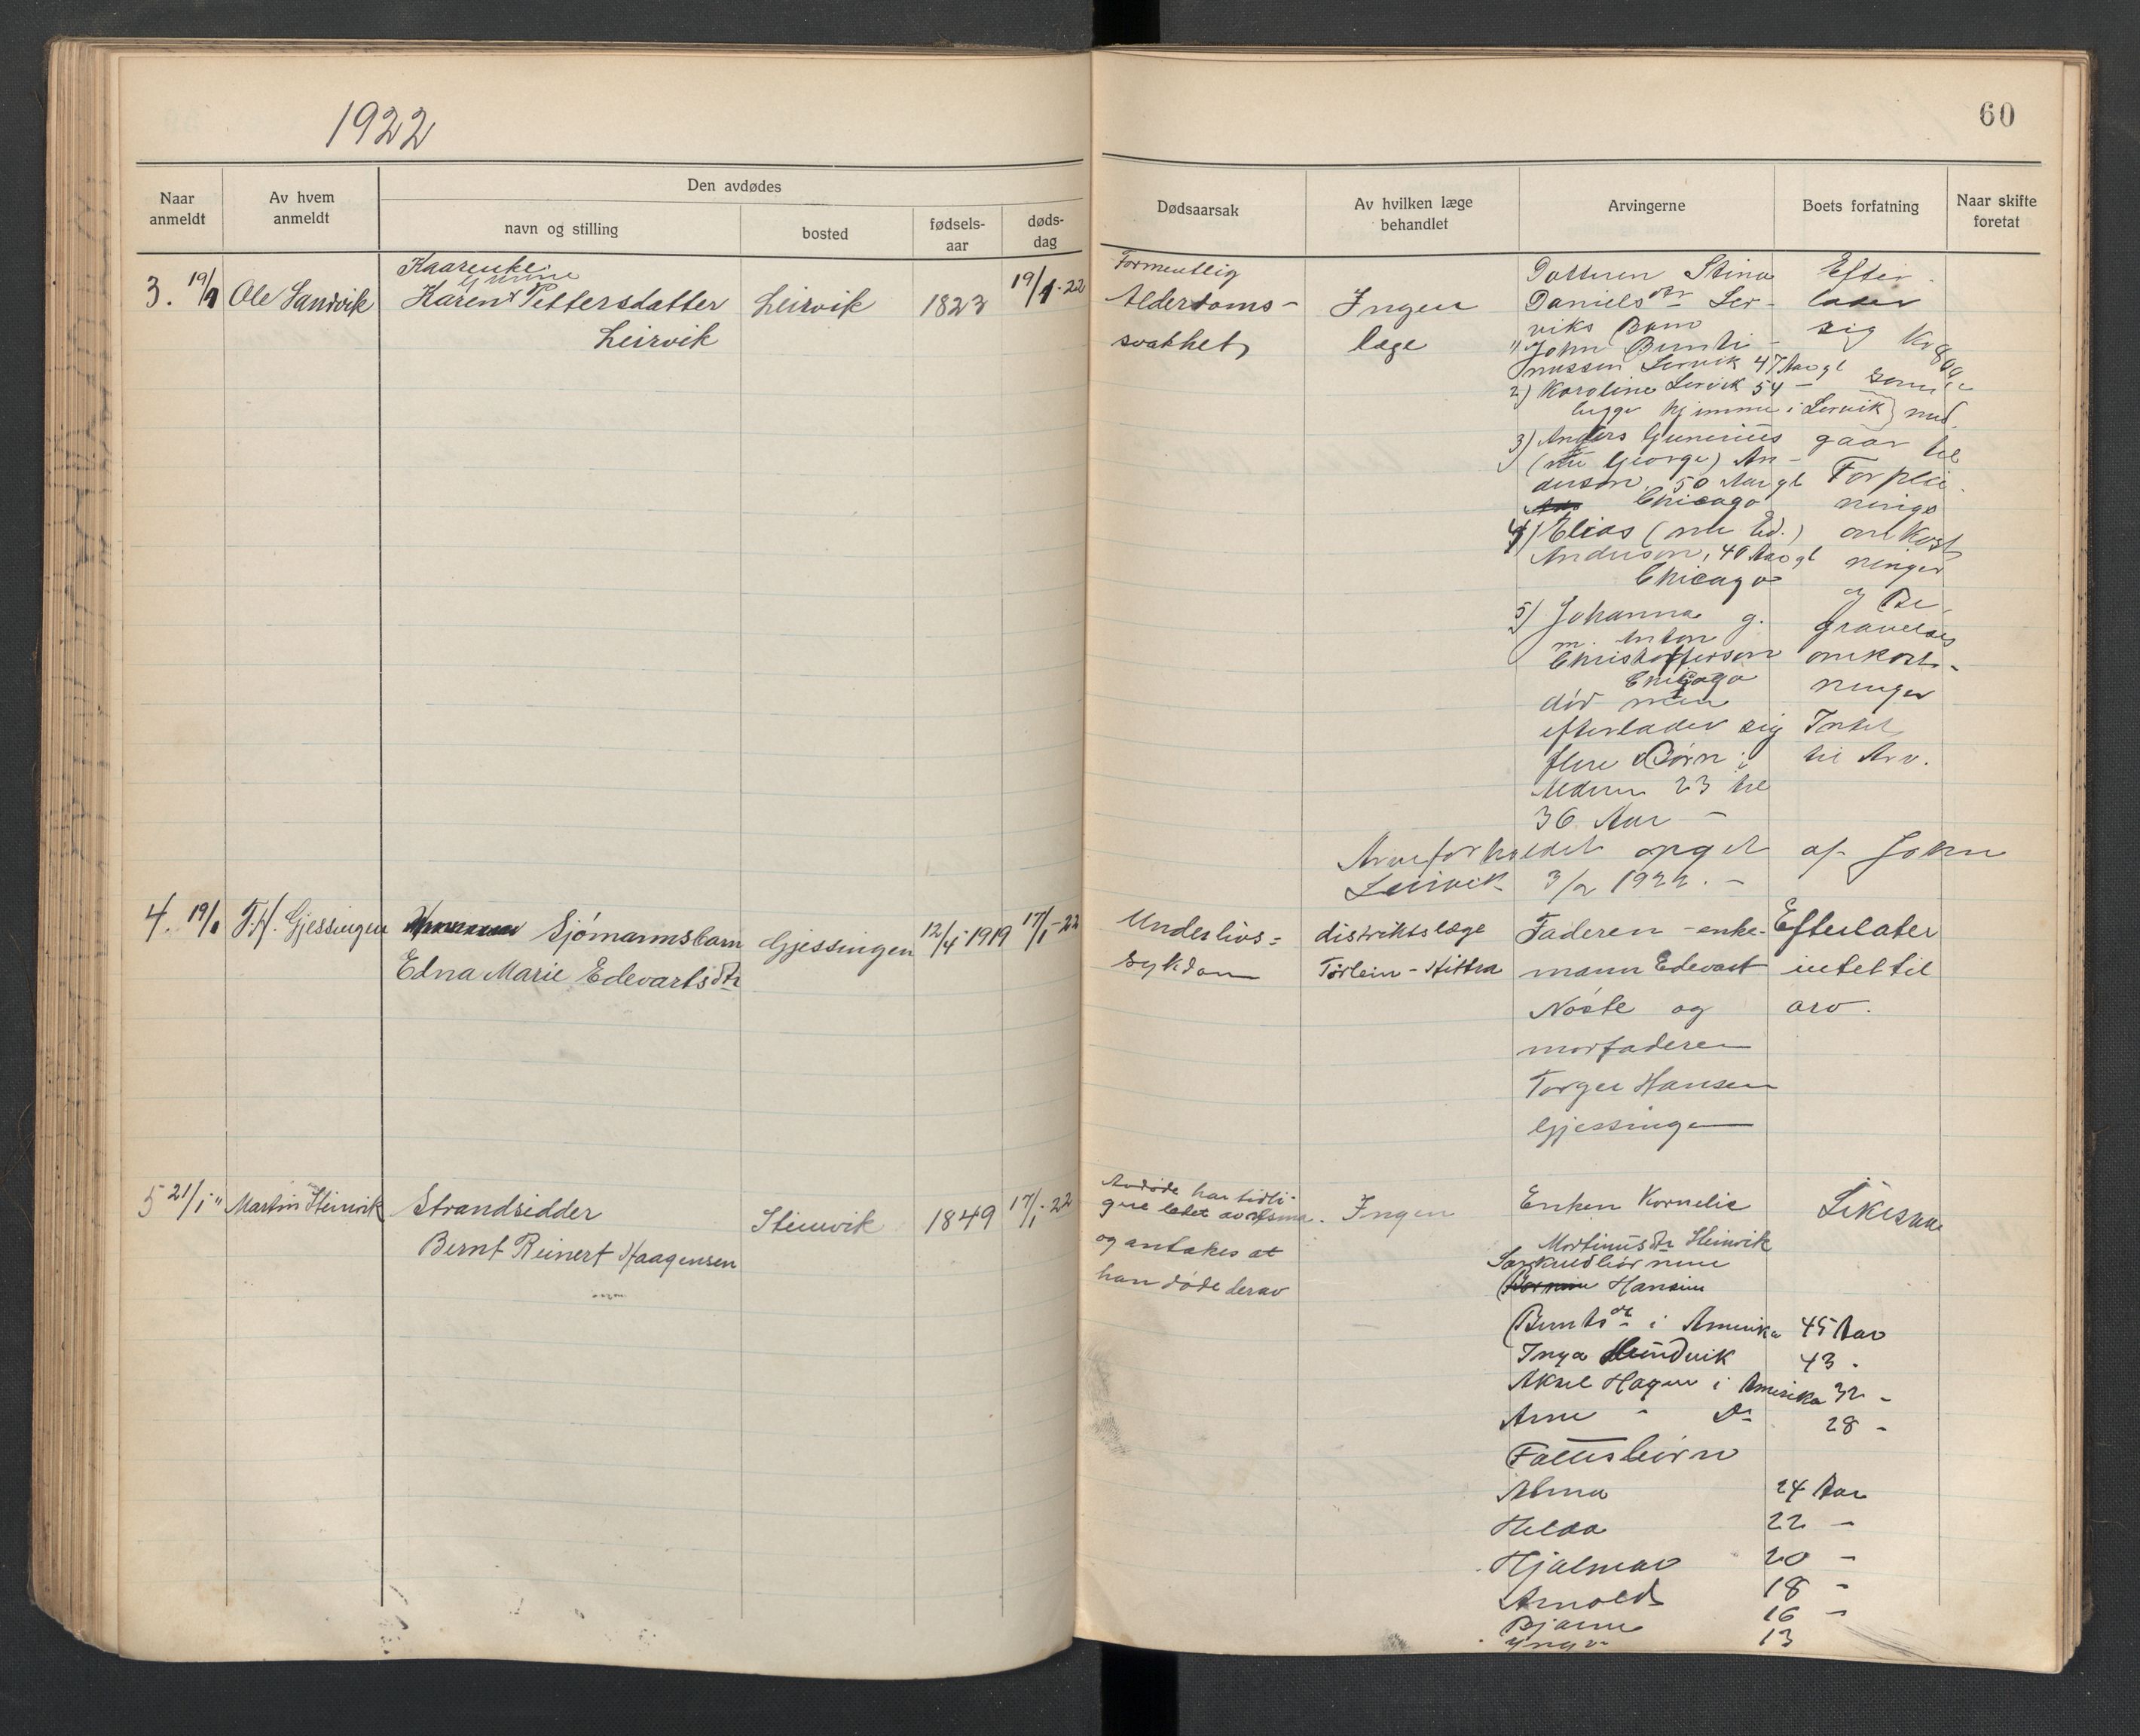 1922
60
Naar anmeldt
Av hvem anmeldt
Den avdødes
navn og stilling
bosted
fødsels-aar
døds-dag
Dødsaarsak
Av hvilken læge behandlet
Arvingerne
Boets forfatning
Naar skifte foretat
3. 19/1
Ole Sandvik
Kaarenke
Karen Pettersdatter
Leirvik
Leirvik
1823
19/1-22
Formentlig
Alderdoms-
svakhet
Ingen
læge
Datteren Stina
Daniels dtr Ler-
viks Barn
1) John Bernti-
nussen Lervik 47 Aar gl
2) Karoline Lervik 54 -
begge hjemme i Lervik
3) Anders Gunerius
(nu George) An-
derson, 50 Aar gl
Chicago
4) Elias (nu Ed.)
Anderson, 40 Aar gl
Chicago
5) Johanna g.
m. Anton
Christofferson
Chicago
død men
efterlader sig
flere Børn i
Alderen 23 til
36 Aar -
Efter-
lader
sig Kr 800
som
med-
gaar til
Forplei-
nings
omkost-
ninger
og Be-
gravelses
omkost-
ninger
Intet
til Arv.
Arveforholdet opget af John
Leirvik 3/2 1922. -
4. 19/1
T.H. Gjessingen
Sjømannsbarn
Edna Marie Edevartsdtr
Gjessingen
12/4 1919
17/1-22
Underlivs-
sykdom
distriktslæge
Tørlein - Hittra
Faderen - enke-
mann Edevart
Nøste og
morfaderen
Torger Hansen
Gjessingen
Efterlater
intet til
arv.
5 21/1 "
Martin Steinvik
Strandsidder
Bernt Reinert Haagensen
Steinvik
1849
17/1-22
Avdøde har tidli-
gere lidet av astma
og antakes at
han døde derav
Ingen
Enken Kornelie
Martinusdtr Steinvik
Særkuldbørnene
Hansine
Berntsdtr i Amerika 45 Aar
Inga Sundvik 43 -
Aksel Hagen i Amerika 32 -
Arne - Do 28 -
Fællesbørn
Alma 24 Aar
Helda 22 -
Hjalmar 20 -
Arnold 18 -
Bjarne 16 -
Yngv 13